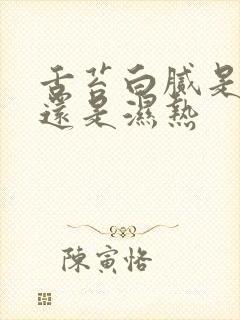 舌苔白膩是
還是濕熱
陳寅恪